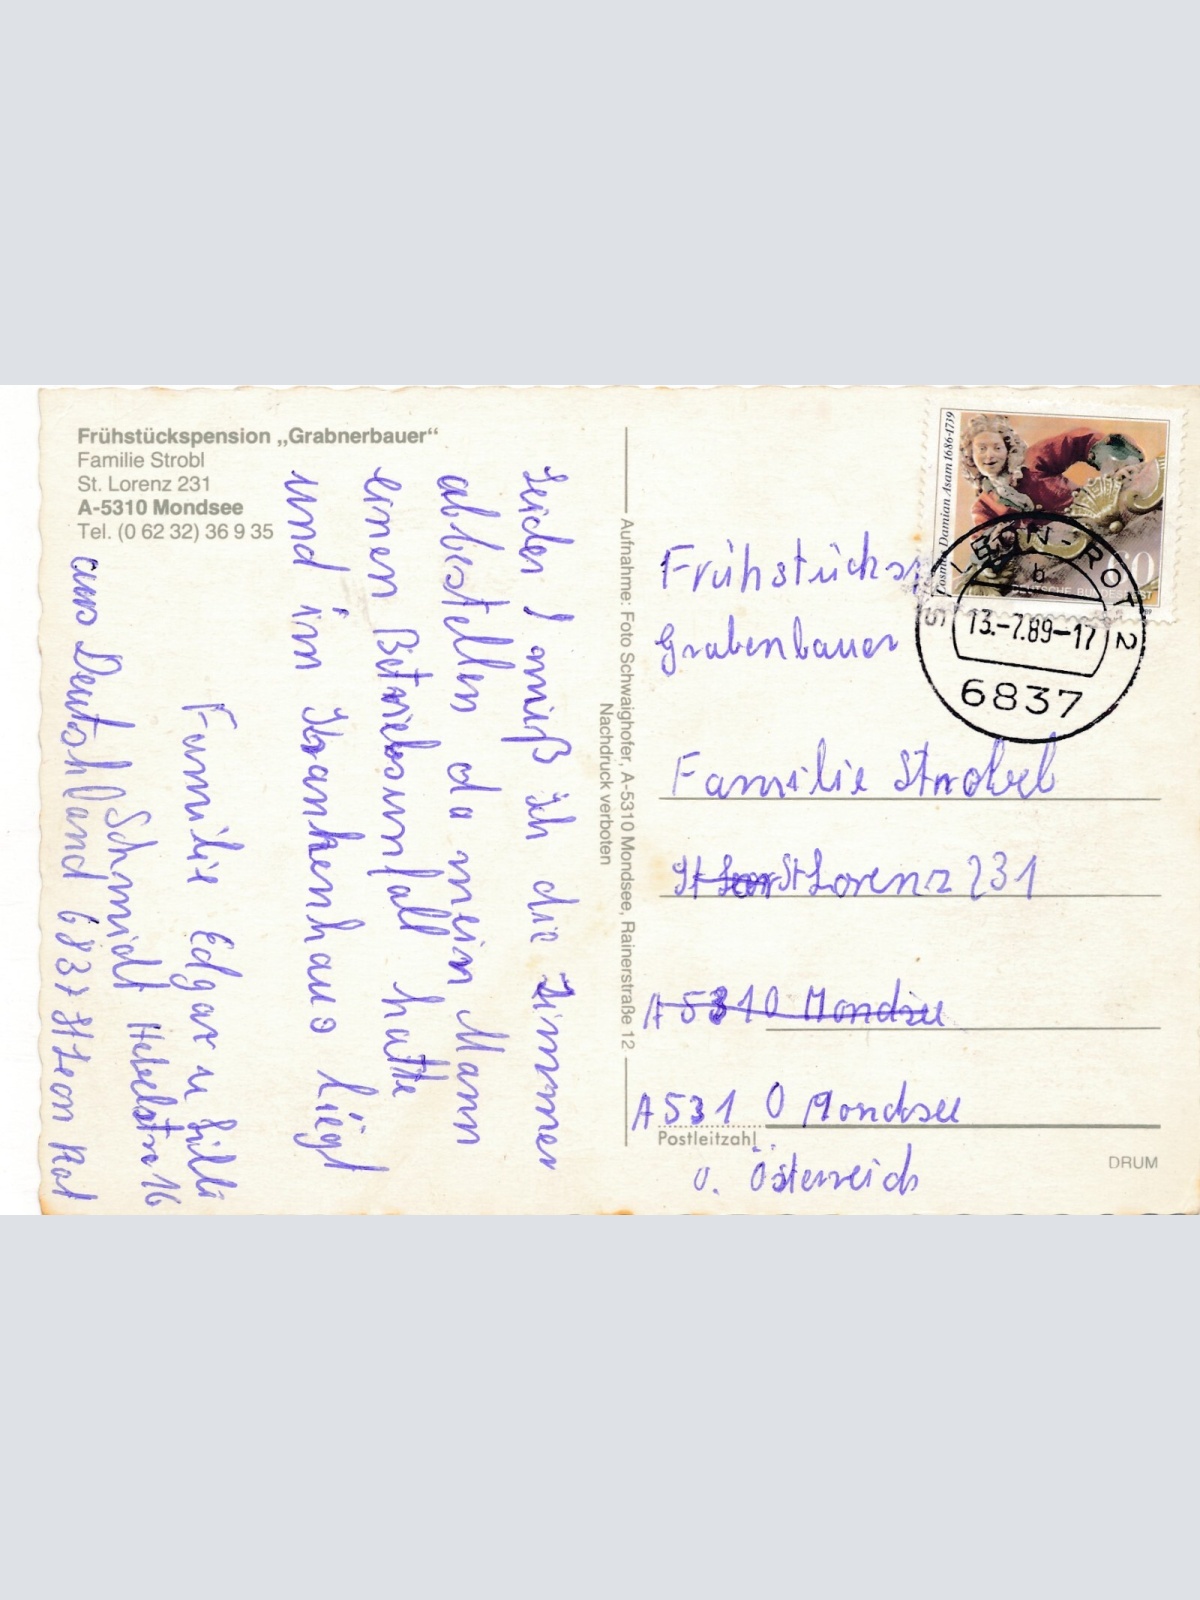 Frühstückspension „Grabnerbauer“
Familie Strobl
St. Lorenz 231
A-5310 Mondsee
Tel. (0 62 32) 36 9 35
Leider muß ich die Zimmer
abbestellen da mein Mann
einen Betriebsunfall hatte
und im Krankenhaus liegt
Familie Edgar u Lilli
Schmidt Hebelstr 16
aus Deutshland 6837 St Leon Rot
Aufnahme: Foto Schwaighofer, A-5310 Mondsee, Rainerstraße 12
Nachdruck verboten
Cosmas Damian Asam 1686-1739
60
DEUTSCHE BUNDESPOST
ST LEON-ROT 2
b
13.-7.89-17
6837
Frühstücksp
Grabenbauer
Familie Strobel
St St Lorenz 231
A 5310 Mondsee
A 5310 Mondsee
Postleitzahl
ö. Österreich
DRUM